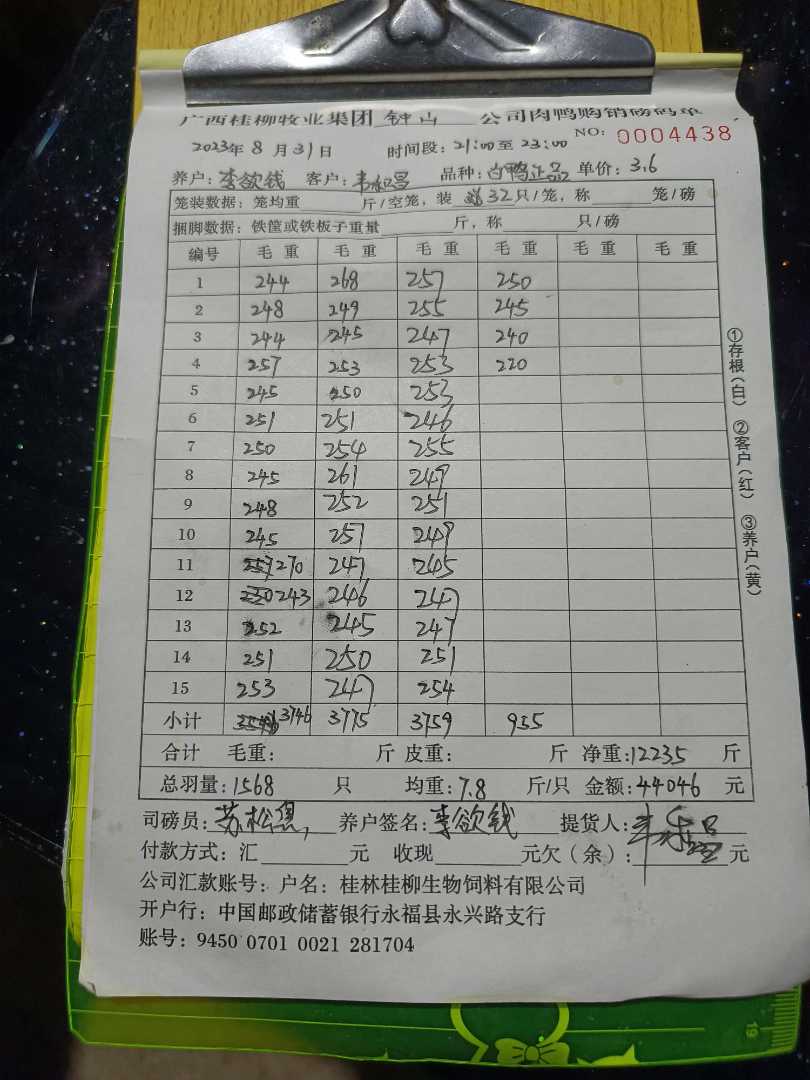 广西桂柳牧业集团 钟山 公司肉鸭购销磅码单
NO: 0004438
2023年 8 月 31 日 时间段: 21:00 至 23:00
养户: 李欲钱 客户: 韦和昌 品种: 白鸭正品 单价: 3.6
笼装数据: 笼均重 斤/空笼, 装 32 只/笼, 称 笼/磅
捆脚数据: 铁筐或铁板子重量 斤, 称 只/磅
编号 毛重 毛重 毛重 毛重 毛重 毛重
1 244 268 257 250
2 248 249 255 245
3 244 245 247 240
4 257 253 253 220
5 245 250 253
6 251 251 246
7 250 254 255
8 245 261 249
9 248 252 251
10 245 257 249
11 270 247 245
12 243 246 247
13 252 245 247
14 251 250 251
15 253 247 254
小计 3746 3775 3759 955
合计 毛重: 斤 皮重: 斤 净重: 12235 斤
总羽量: 1568 只 均重: 7.8 斤/只 金额: 44046 元
司磅员: 苏松 养户签名: 李欲钱 提货人:
付款方式: 汇 元 收现 元欠(余): 元
公司汇款账号: 户名: 桂林桂柳生物饲料有限公司
开户行: 中国邮政储蓄银行永福县永兴路支行
账号: 9450 0701 0021 281704
①存根(白) ②客户(红) ③养户(黄)
19